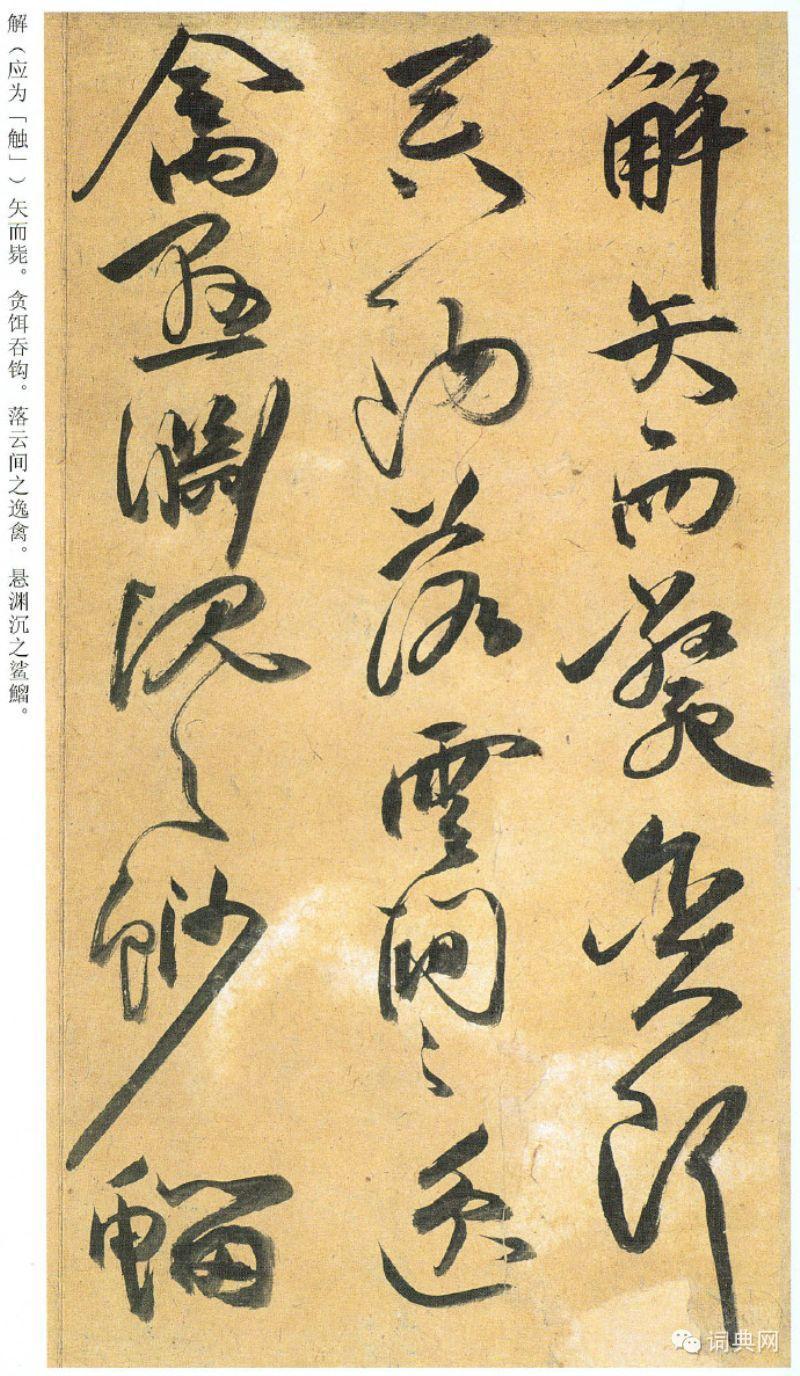 解矢而斃貪餌
吞鉤落雲間之逸
禽懸淵沉之魦鰡
解（应为「触」）矢而毙。贪饵吞钩。落云间之逸禽。悬渊沉之鲨鰡。
词典网